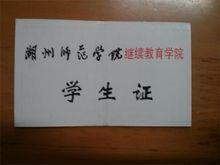 州师范学院继续教育学院
学生证